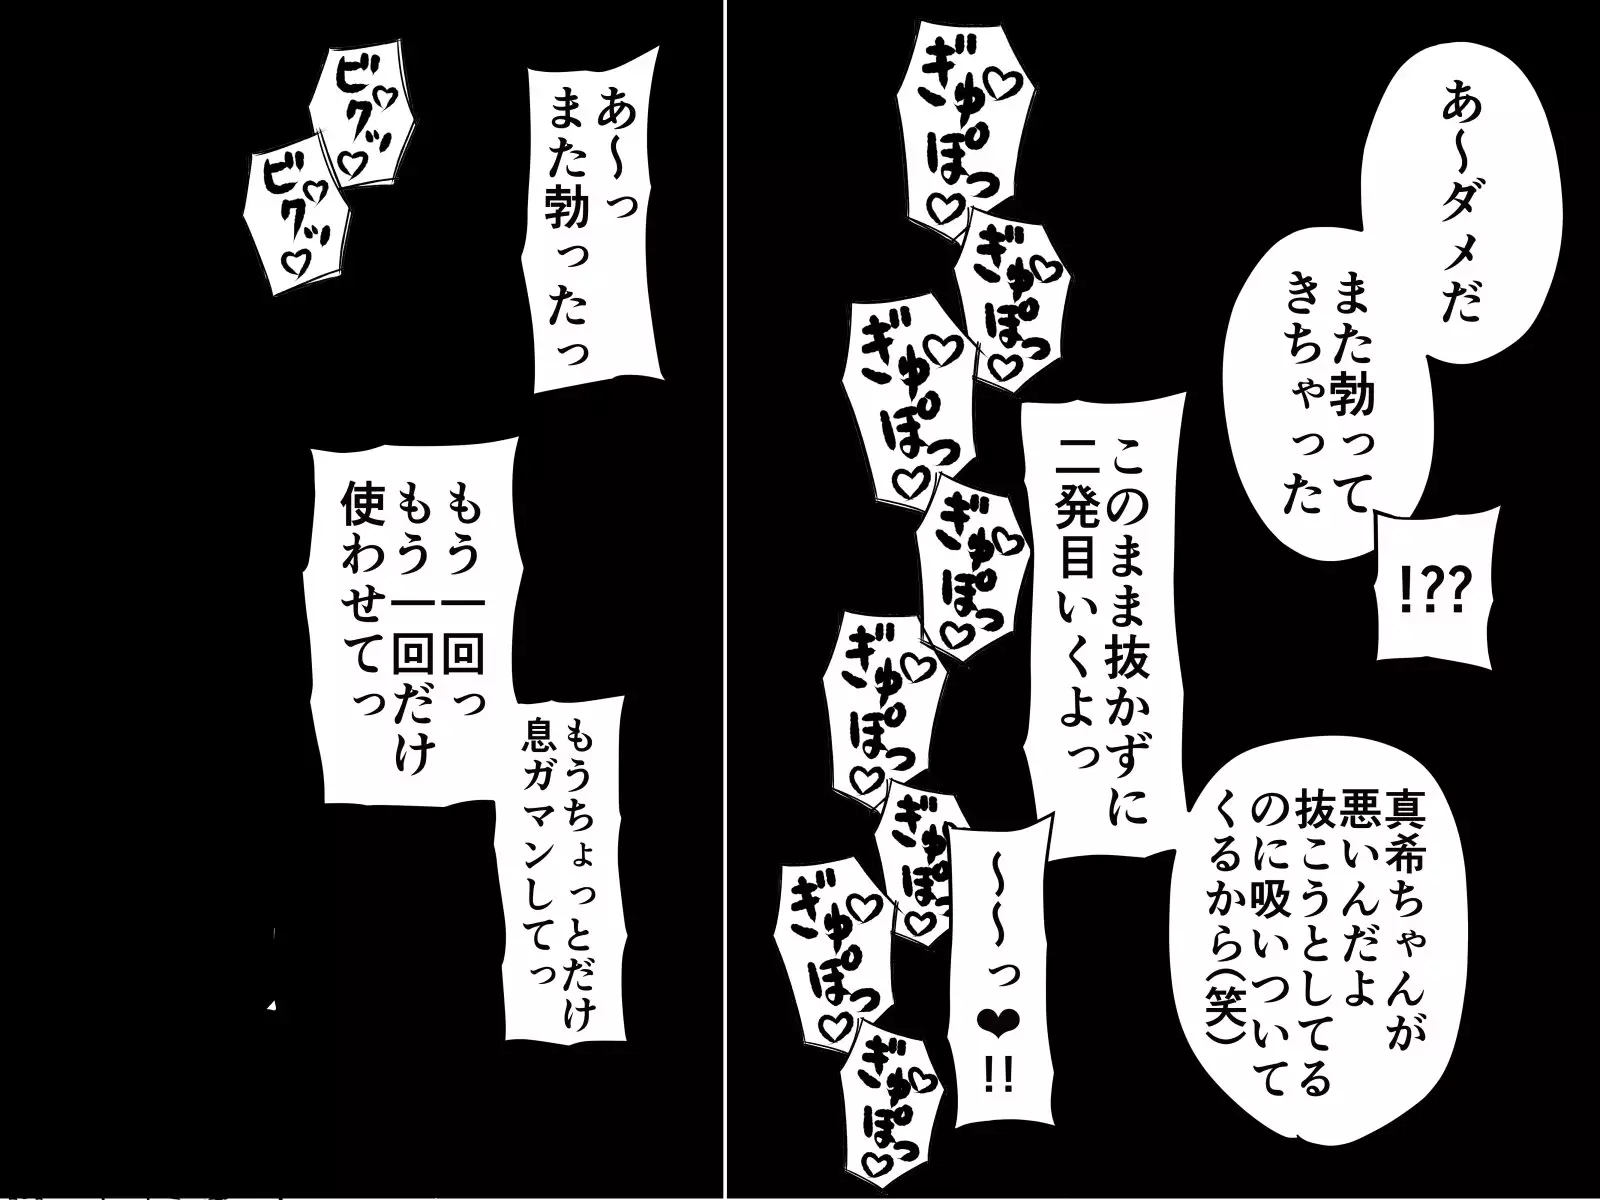 あ〜ダメだ
また勃って
きちゃった
!??
真希ちゃんが
悪いんだよ
抜こうとしてる
のに吸いついて
くるから(笑)
このまま抜かずに
二発目いくよっ
ぎゅぽっ♡
ぎゅぽっ♡
ぎゅぽっ♡
ぎゅぽっ♡
ぎゅぽっ♡
ぎゅぽっ
ぎゅぽっ♡
ぎゅぽっ♡
〜〜っ❤!!
あ〜っ
また勃ったっ
ビクッ♡
ビクッ♡
もう一回っ
もう一回だけ
使わせてっ
もうちょっとだけ
息ガマンしてっ